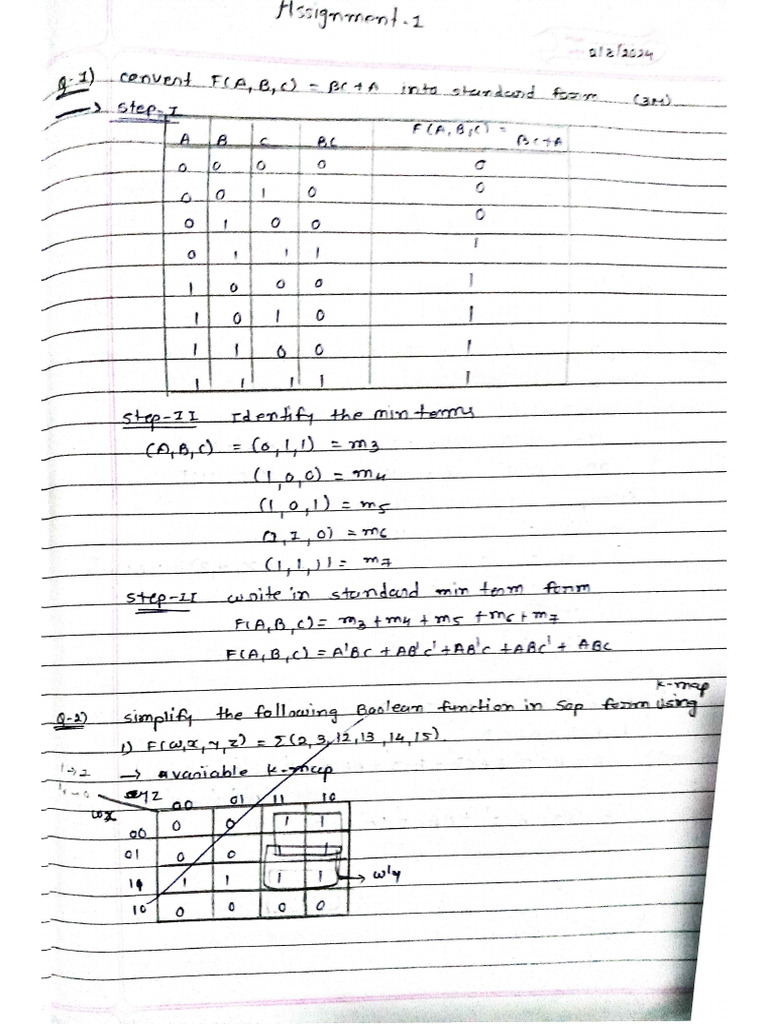 Assignment-1
2/8/2024
Q-1) convert F(A,B,C) = BC+A into standard form (3M)
→ Step-I
A B C BC F(A,B,C) = BC+A
0 0 0 0 0
0 0 1 0 0
0 1 0 0 0
0 1 1 1 1
1 0 0 0 1
1 0 1 0 1
1 1 0 0 1
1 1 1 1 1
Step-II Identify the min terms
(A,B,C) = (0,1,1) = m3
(1,0,0) = m4
(1,0,1) = m5
(1,1,0) = m6
(1,1,1) = m7
Step-II write in standard min term form
F(A,B,C) = m3+m4+m5+m6+m7
F(A,B,C) = A'BC + AB'C' + AB'C + ABC' + ABC
K-map
Q-2) simplify the following Boolean function in sop form using
1) F(w,x,y,z) = Σ(2,3,12,13,14,15)
→ 4 variable K-map
yz 00 01 11 10
wx
00 0 0 1 1
01 0 0 1 1
11 1 1 1 1 → w'y
10 0 0 0 0